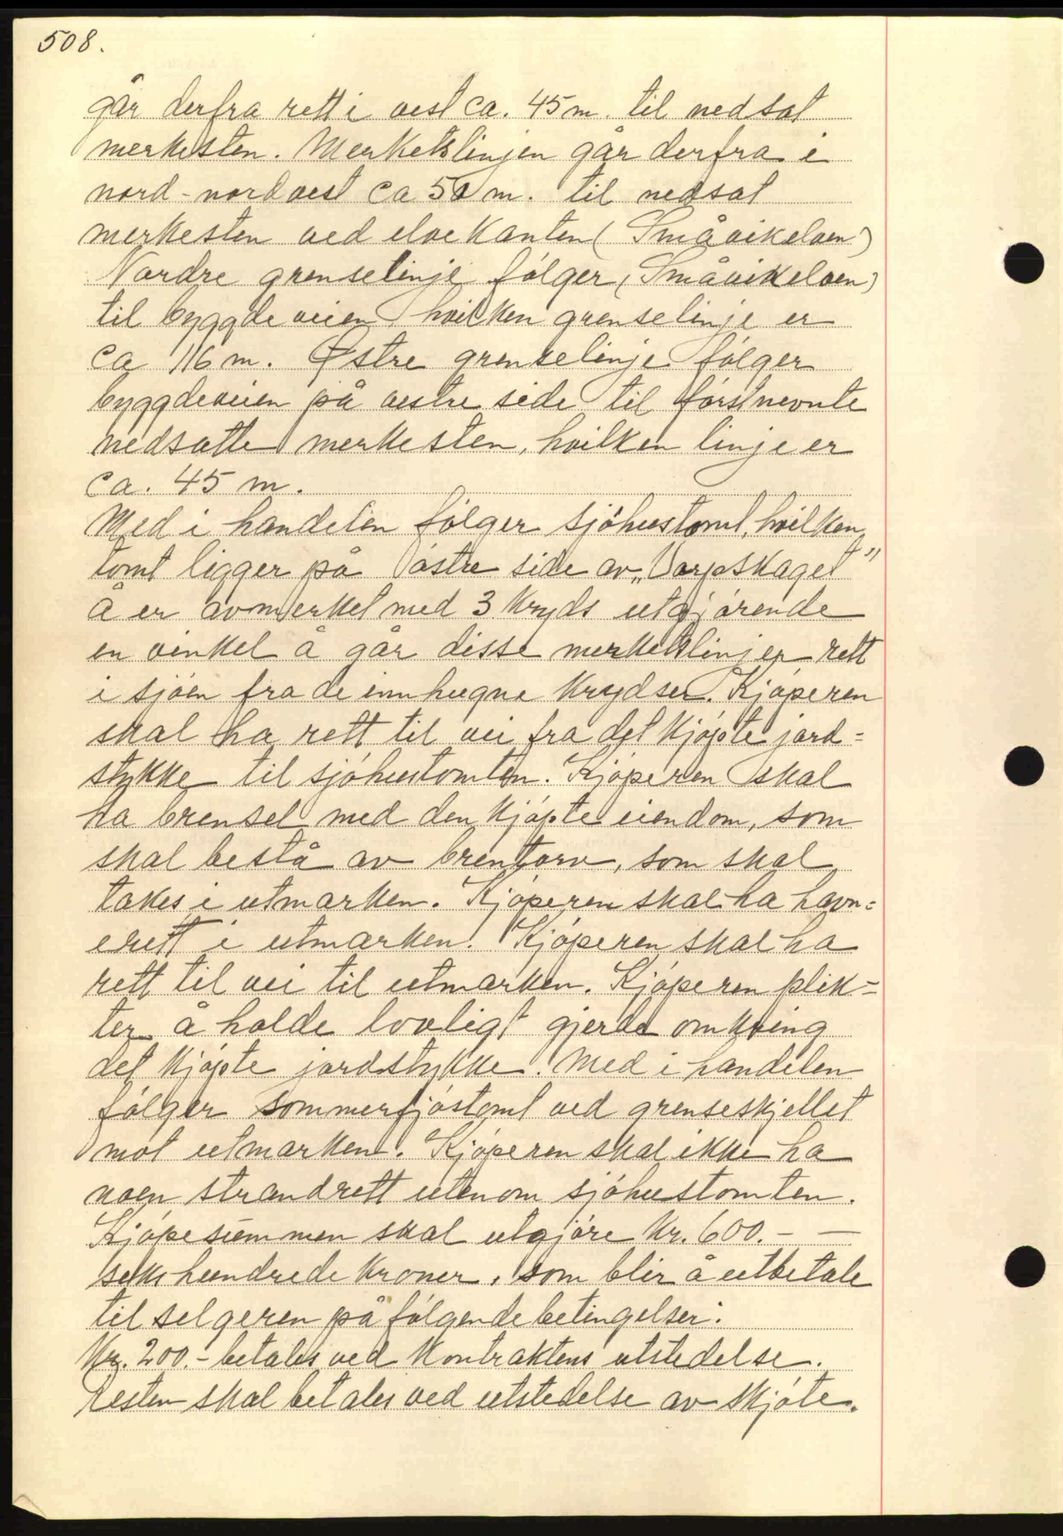 508.
går derfra rett i vest ca. 45 m. til nedsat
merkesten. Merkelslinjen går derfra i
nord-nordvest ca 50 m. til nedsat
merkesten ved elvekanten (Småvikelven)
Nordre grenselinje følger (Småvikelven)
til byggdeveien hvilken grenselinje er
ca 116 m. Østre grenselinje følger
byggdeveien på vestre side til førstnevnte
nedsatte merkesten, hvilken linje er
ca. 45 m.
Med i handelen følger sjøhustomt, hvilken
tomt ligger på østre side av „Varpskaget"
å er avmerket med 3 kryds utgjørende
en vinkel å går disse merkelslinjer rett
i sjøen fra de innhugne krydser. Kjøperen
skal ha rett til vei fra det kjøpte jord=
stykke til sjøhustomten. Kjøperen skal
ha brensel med den kjøpte eiendom, som
skal bestå av brenntorv, som skal
takes i utmarken. Kjøperen skal ha havn=
erett i utmarken. Kjøperen skal ha
rett til vei til utmarken. Kjøperen plik=
ter å holde lovligt gjerde omkring
det kjøpte jordstykke. Med i handelen
følger sommerfjøstomt ved grenseskjellet
mot utmarken. Kjøperen skal ikke ha
noen strandrett utenom sjøhustomten.
Kjøpesummen skal utgjøre kr. 600.- —
sekshundrede kroner, som blir å utbetale
til selgeren på følgende betingelser:
Kr. 200.- betales ved kontraktens utstedelse.
Resten skal betales ved utstedelse av skjøte.